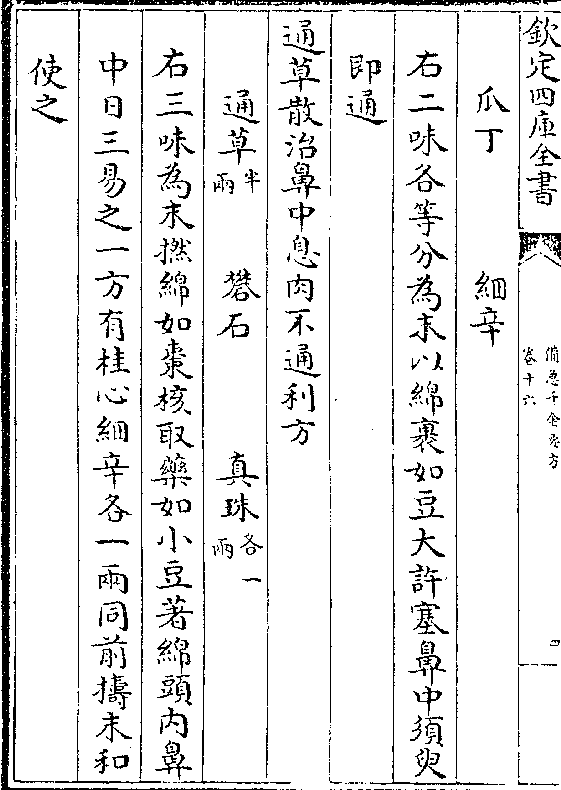 欽定四庫全書
備急千金要方
卷十六
瓜丁　細辛
右二味各等分為末以綿裹如豆大許塞鼻中須臾
即通
通草散治鼻中息肉不通利方
通草半兩　礬石　真珠各一兩
右三味為末撚綿如棗核取藥如小豆著綿頭內鼻
中日三易之一方有桂心細辛各一兩同前擣末和
使之